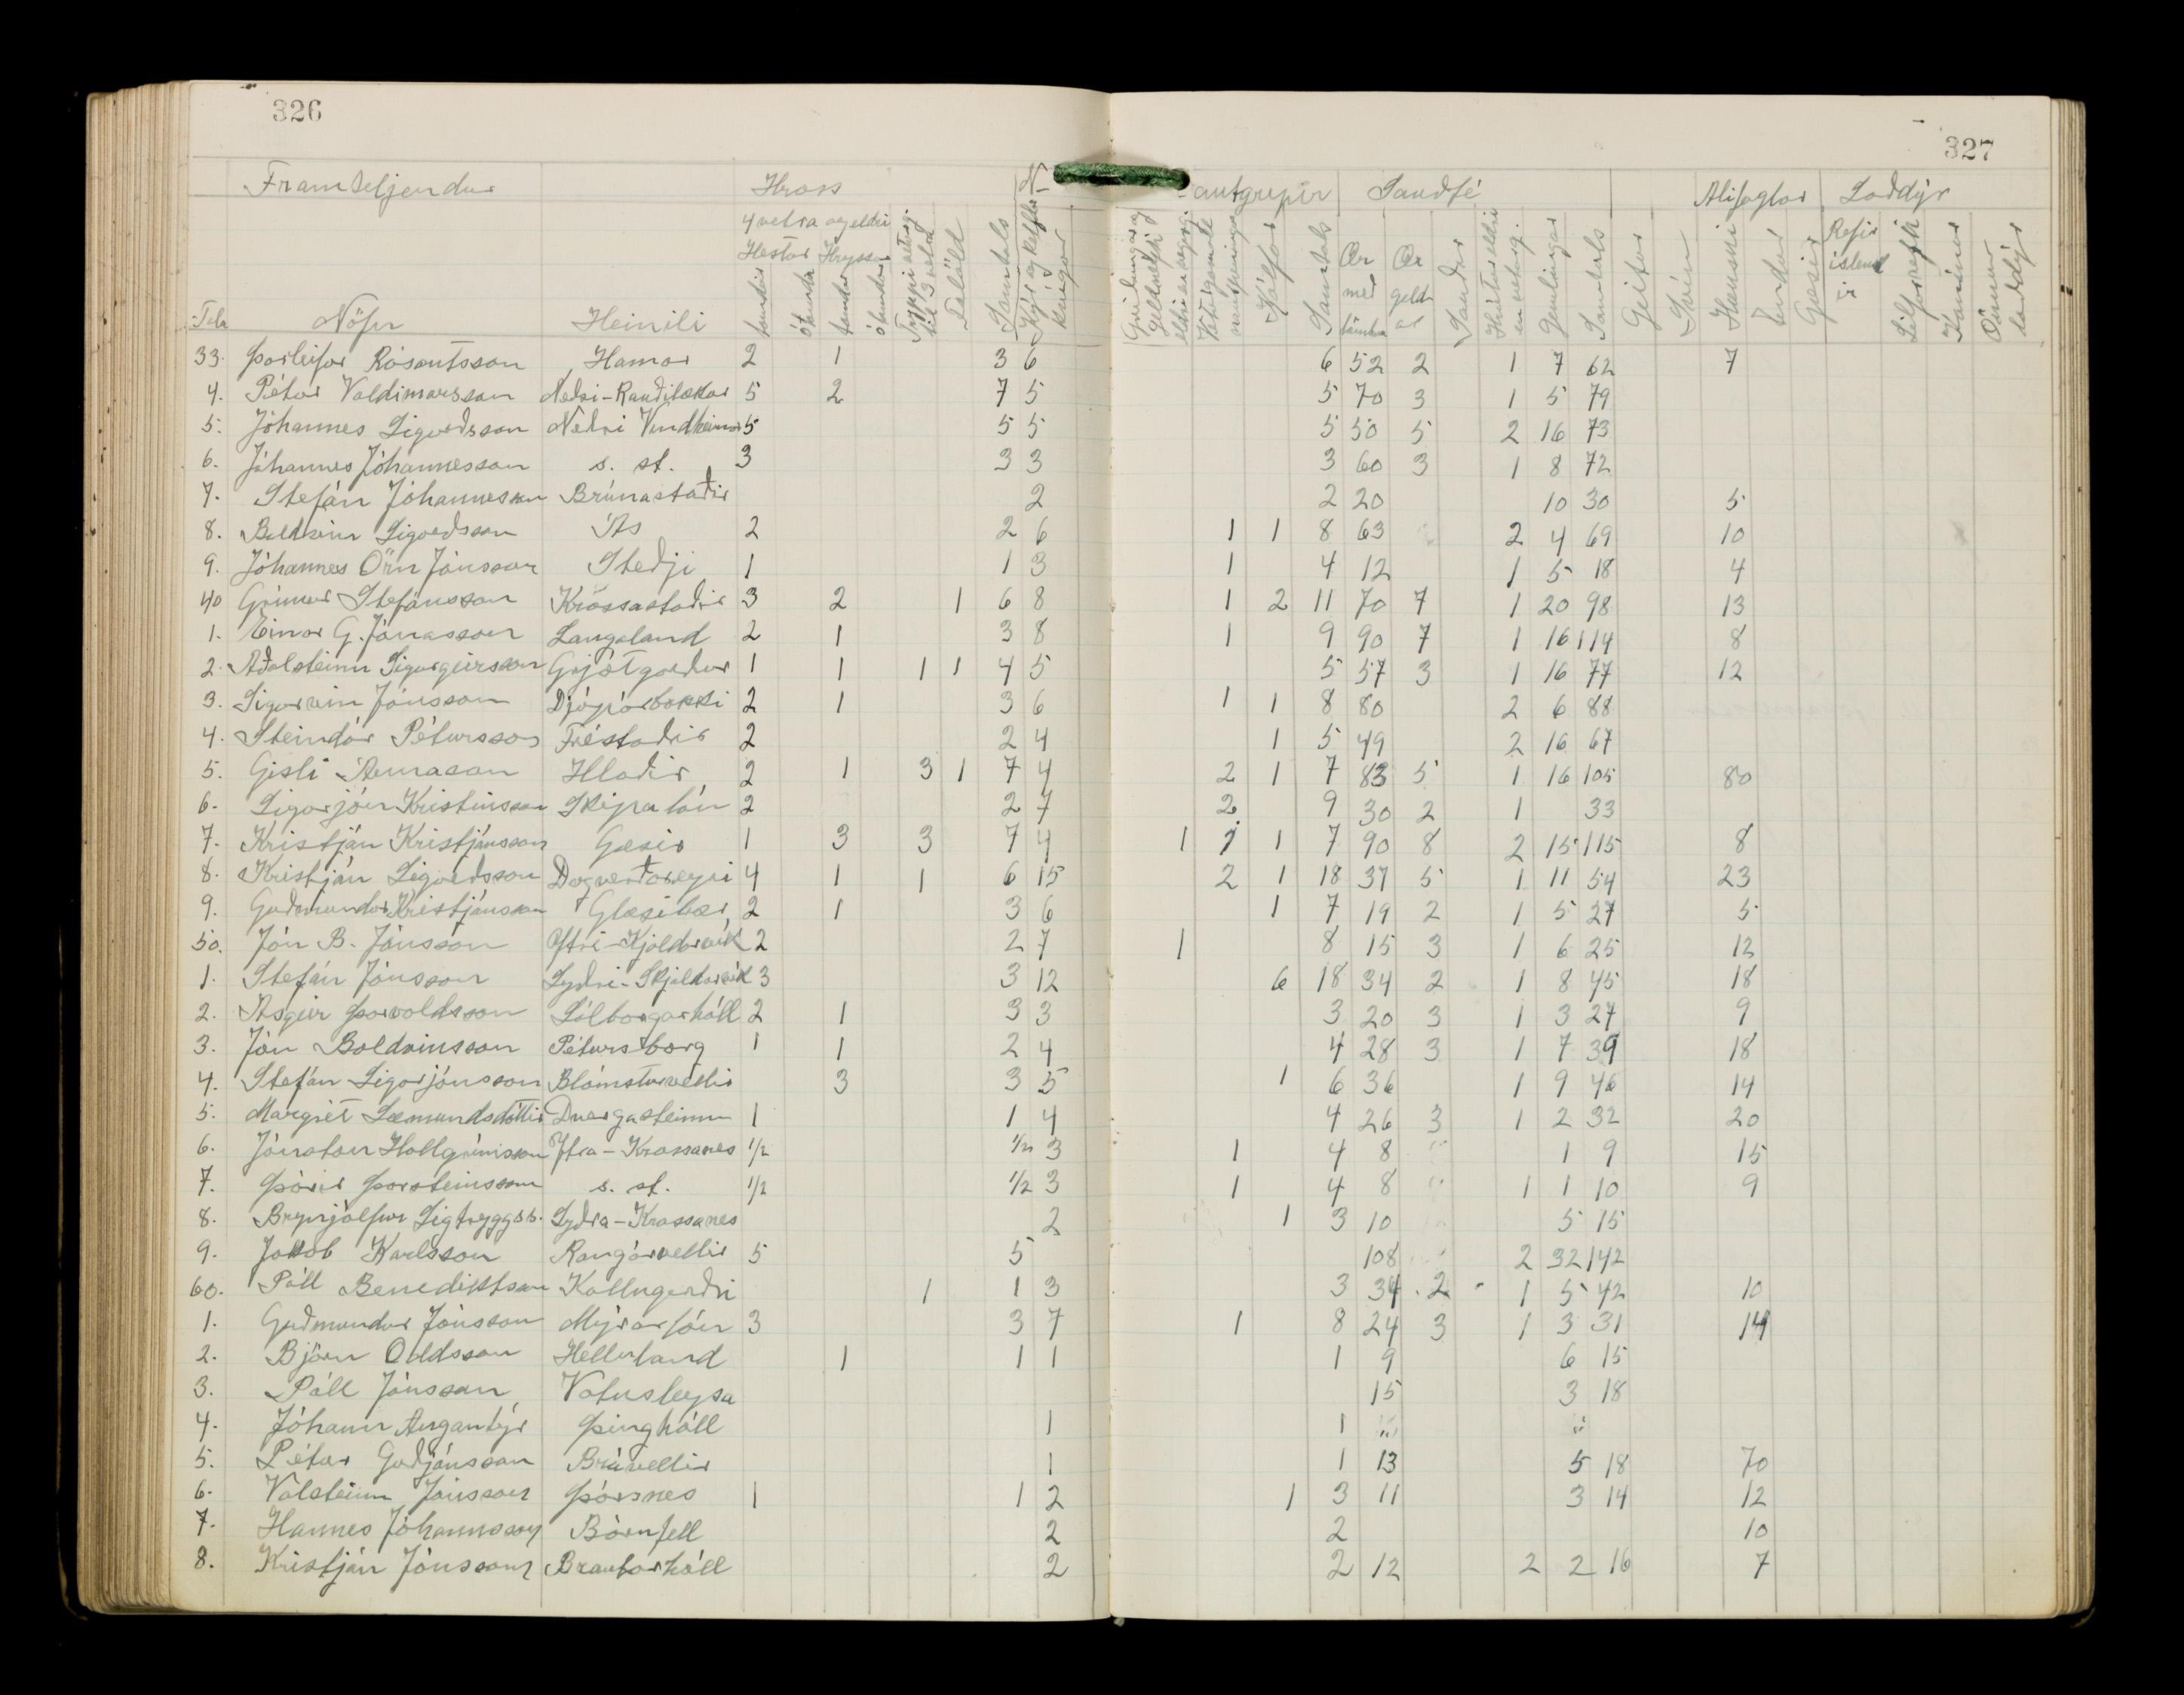 326
327
Framteljendur Hross N- -autgripir Sauðfé Alifuglar Loðdýr
4 vetra og eldri
Hestar Hryssur
tamdir ótamdir tamdar ótamdar Tryppi veturg. til 3 vetra Folöld Samtals Kýr og kelfdar kvígur
Kálfar Samtals Ær með lömbum Ær geldar Sauðir Hrútar eldri en veturg. Gemlingar Samtals Geitur Svín Hænsni Endur Gæsir Refir íslenskir Silfurrefir Kanínur Önnur loðdýr
Tala Nöfn Heimili
33. Þorleifur Rósantsson Hamar 2 1 3 6 6 52 2 1 7 62 7
4. Pétur Valdimarsson Neðri-Rauðilækur 5 2 7 5 5 70 3 1 5 79
5. Jóhannes Sigurðsson Neðri Vindheimar 5 5 5 5 50 5 2 16 73
6. Jóhannes Jóhannesson s. st. 3 3 3 3 60 3 1 8 72
7. Stefán Jóhannesson Brúnastaðir 2 2 20 10 30 5
8. Baldvin Sigurðsson Ás 2 2 6 1 1 8 63 2 4 69 10
9. Jóhannes Örn Jónsson Steðji 1 1 3 1 4 12 1 5 18 4
40 Grímur Stefánsson Krossastaðir 3 2 1 6 8 1 2 11 70 7 1 20 98 13
1. Einar G. Jónasson Laugaland 2 1 3 8 1 9 90 7 1 16 114 8
2. Aðalsteinn Sigurgeirsson Grjótgarður 1 1 1 1 4 5 5 57 3 1 16 77 12
3. Sigurvin Jónsson Djúpárbakki 2 1 3 6 1 1 8 80 2 6 88
4. Steindór Pétursson Tréstaðir 2 2 4 1 5 49 2 16 67
5. Gísli Árnason Hlaðir 2 1 3 1 7 4 2 1 7 83 5 1 16 105 80
6. Sigurjón Kristinsson Skipalón 2 2 7 2 9 30 2 1 33
7. Kristján Kristjánsson Gæsir 1 3 3 7 4 1 1 1 7 90 8 2 15 115 8
8. Kristján Sigurðsson Dagverðareyri 4 1 1 6 15 2 1 18 37 5 1 11 54 23
9. Guðmundur Kristjánsson Glæsibær 2 1 3 6 1 7 19 2 1 5 27 5
50. Jón B. Jónsson Ytri-Kjoldarvík 2 2 7 1 8 15 3 1 6 25 12
1. Stefán Jónsson Syðri-Skjaldarvík 3 3 12 6 18 34 2 1 8 45 18
2. Ásgeir Þorvaldsson Sólborgarhóll 2 1 3 3 3 20 3 1 3 27 9
3. Jón Baldvinsson Pétursborg 1 1 2 4 4 28 3 1 7 39 18
4. Stefán Sigurjónsson Blómsturvellir 3 3 5 1 6 36 1 9 46 14
5. Margrét Sæmundsdóttir Dvergasteinn 1 1 4 4 26 3 1 2 32 20
6. Jónatan Hallgrímsson Ytra-Krossanes 1/2 1/2 3 1 4 8 1 9 15
7. Þórir Þorsteinsson s. st. 1/2 1/2 3 1 4 8 1 1 10 9
8. Brynjólfur Sigtryggss. Syðra-Krossanes 2 1 3 10 5 15
9. Jakob Karlsson Rangárvellir 5 5 108 2 32 142
60. Páll Benediktsson Kollugerði 1 1 3 3 34 2 1 5 42 10
1. Guðmundur Jónsson Mýrarlón 3 3 7 1 8 24 3 1 3 31 14
2. Björn Oddsson Helluland 1 1 1 1 9 6 15
3. Páll Jónsson Vatnsleysa 15 3 18
4. Jóhann Angantýr Þinghóll 1 1 " "
5. Pétur Guðjónsson Brúvellir 1 1 13 5 18 70
6. Valsteinn Jónsson Þórsnes 1 1 2 1 3 11 3 14 12
7. Hannes Jóhannsson Börnfell 2 2 10
8. Kristján Jónsson Brautarhóll 2 2 12 2 2 16 7